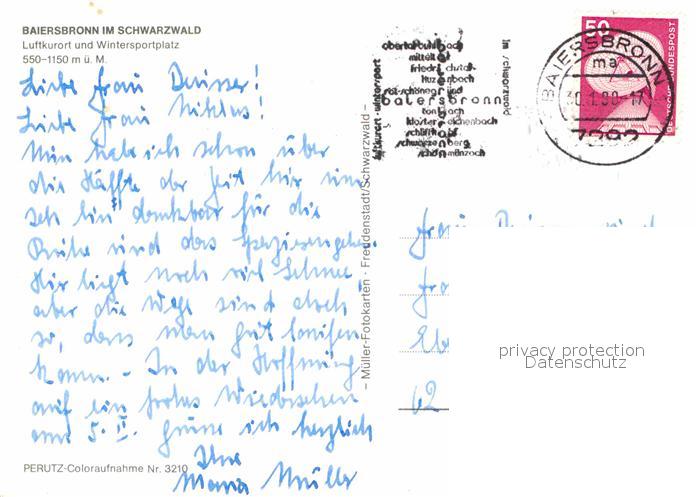 BAIERSBRONN IM SCHWARZWALD
Luftkurort und Wintersportplatz
550–1150 m ü. M.
Liebe Frau Deisser!
Liebe Frau Niklus!
Nun habe ich schon über
die Hälfte der Zeit hier um
seh bin dankbar für die
Ruhe und das Spazierengehen.
Hier liegt noch viel Schnee
aber die Wege sind doch
so, dass man gut laufen
kann. – In der Hoffnung
auf ein frohes Wiedersehen
am 5. II. grüsse ich herzlich
Ihre
Maria Müller
PERUTZ-Coloraufnahme Nr. 3210
– Müller-Fotokarten · Freudenstadt/Schwarzwald –
luftkurort-wintersport
obertal-buhlbach
mitteltal
friedrichstal
huzenbach
röt-schönegründ
baiersbronn
tonbach
klosterreichenbach
schwarzenberg
schönmünzach
im schwarzwald
50
DEUTSCHE BUNDESPOST
BAIERSBRONN
ma
30.1.80-17
7292
Frau
Fra
Eb
62
privacy protection
Datenschutz